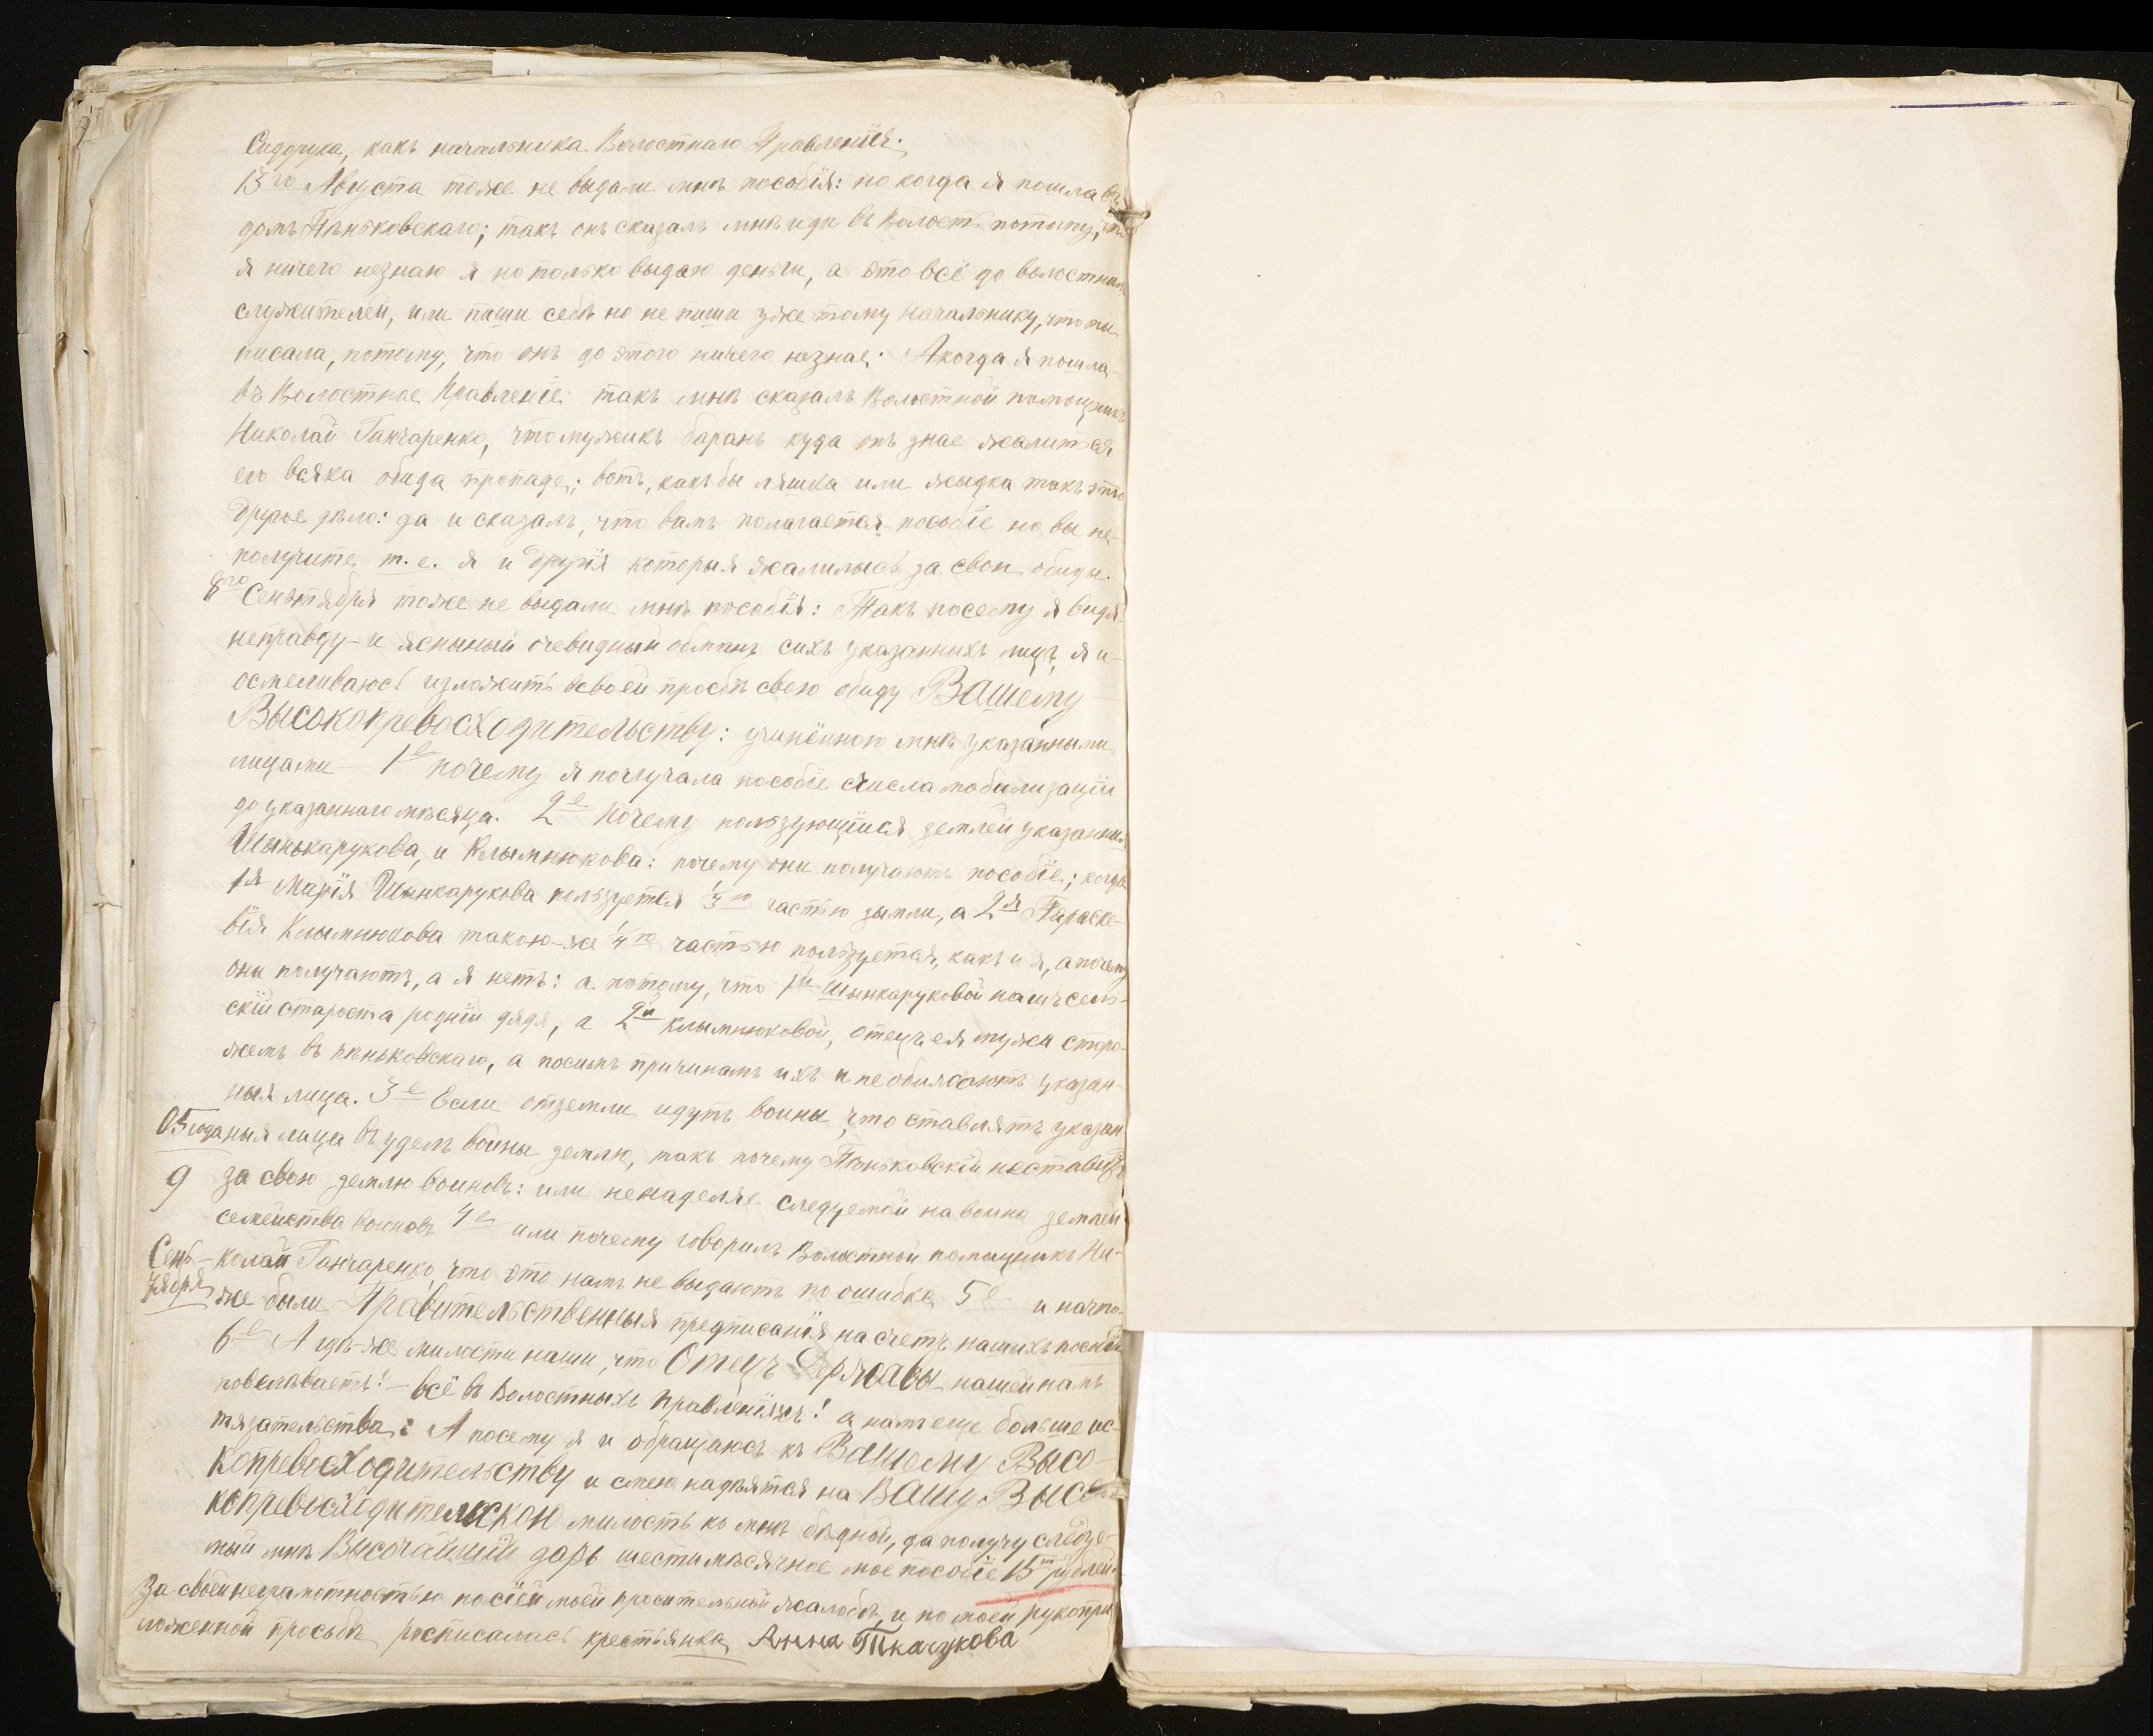 Сидорука, какъ начальника Волостнаго Правленiя.
13го Августа тоже не выдали мнѣ пособiя: но когда я пошла въ
домъ Пѣньковскаго; такъ онъ сказалъ мнѣ иди въ Волость потому, что
я ничего незнаю я но только выдаю деньги, а это всё до волостных
служителей, или пиши себѣ но не пиши уже тому Начальнику, что ты
писала, потому, что онъ до этого ничего незнае: А когда я пошла
въ Волостное Правленiе такъ мнѣ сказалъ Волостной помощникъ
Николай Ганчаренко, что мужикъ баранъ куда онъ знае жалиться
его всяка обида пропаде; вотъ, какъ бы ляшка или жыдка такъ это
другое дѣло: да и сказалъ, что вамъ полагается пособiе но вы не-
получите, т. е. я и другiя которыя жалилысь за свои обиды.
8го Сентября тоже не выдали мнѣ пособiя: Такъ посему я видя
неправду и ясныный очевидный обманъ сихъ указанныхъ лицъ, я и-
осмеливаюсь изложить всвоей просбѣ свою обиду Вашему
Высокопревосходительству: учинённою мнѣ указанными
лицами 1е почему я получала пособiе счисла мобилизацiи
до указаннаго мѣсяца. 2е Почему пользующiися землей указанныя
Шынькарукова, и Клымнюкова: почему они получають пособiе; когда
1я Марiя Шынкарукова пользуется 1/3ю частью зымли, а 2я Параске-
вiя Клымнюкова такою-же 1/4ю частью пользуется, какъ и я, а почему
оны получаютъ, а я нетъ: а потому, что 1й Шынкаруковой нашъ сель-
скiй староста роднiй дядя, а 2й Клымнюковой, отецъ ея мужа сторо-
жемъ въ пѣньковскаго, а посимъ причинамъ ихъ и не обижаютъ указан-
ныя лица. 3е Если отземли идутъ воины, что ставлятъ указан
05 года ныя лица въ уделъ воины землю, такъ почему Пѣньковскiй неставитъ
9 за свою землю воиновъ: или ненаделяе следуемой на воина землей
семейства воиновъ 4е или почему говорилъ Волостной помощникъ Ни-
Сень- колай Ганчаренко, что это намъ не выдаютъ по ошибке 5е и начто
тября же были Правительственныя предписанiя насчетъ нашихъ пособiй
6е А гдѣ-же милости наши, что Отецъ Державы нашей намъ
повелѣваетъ! - всё въ Волостныхъ Правленiяхъ! а намъ еще больше ис-
тязательства: А посему я и обращаюсъ къ Вашему Высо-
копревосходительству и смею надѣятся на Вашу Высо-
копревосходительскою милость ко мнѣ бѣдной, да получу следуе-
мый мнѣ Высочайшiй даръ шестимѣсячное мое пособiе 15ть рублей.
За своей неграмотностью по сiей моей просительной жалобѣ, и по моей рукопри
ложенной просьбѣ росписалась крестьянка Анна Ткачукова